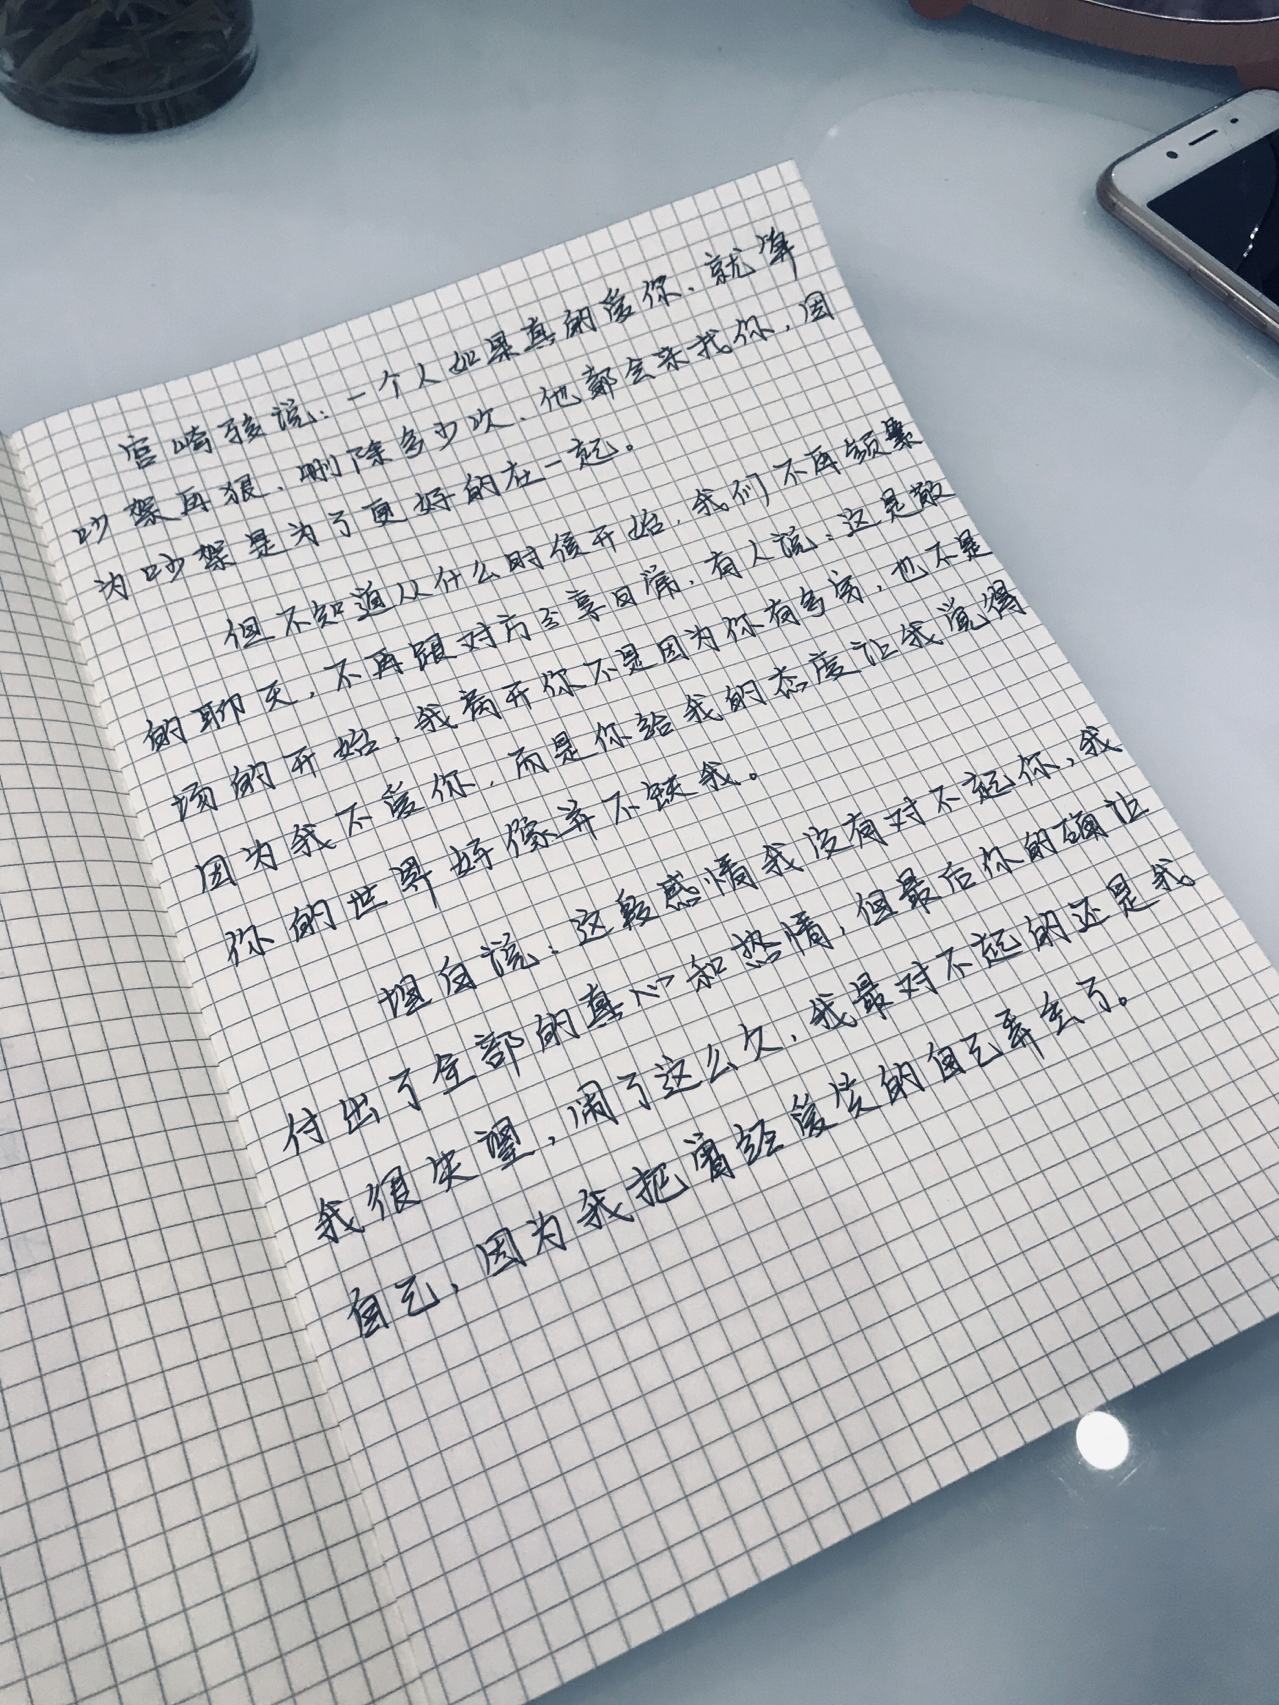 宫崎骏说：一个人如果真的爱你、就算
吵架再狠、删除多少次、他都会来找你，因
为吵架是为了更好的在一起。
但不知道从什么时侯开始，我们不再频繁
的聊天，不再跟对方分享日常，有人说：这是散
场的开始，我离开你不是因为你有多穷，也不是
因为我不爱你，而是你给我的态度让我觉得
你的世界好像并不缺我。
坦白说：这段感情我没有对不起你，我
付出了全部的真心和热情，但最后你的确让
我很失望，闹了这么久，我最对不起的还是我
自己，因为我把曾经爱笑的自己弄丢了。